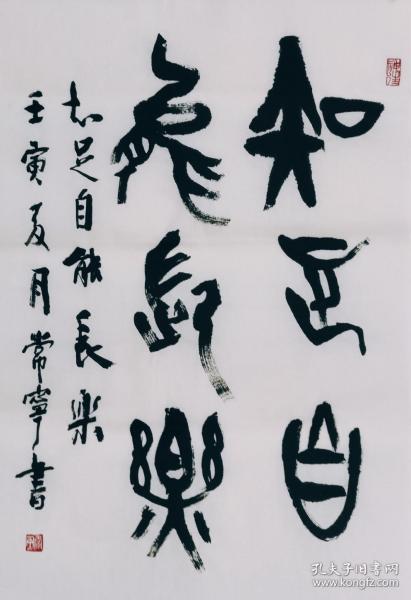 知足自
能長樂
知足自能長樂
壬寅夏月常寧書
孔夫子旧书网
www.kongfz.com